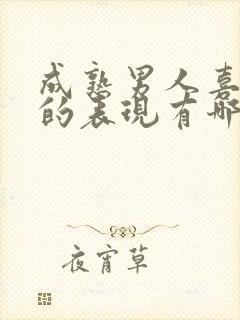 成熟男人喜
的表现有哪
夜宵草